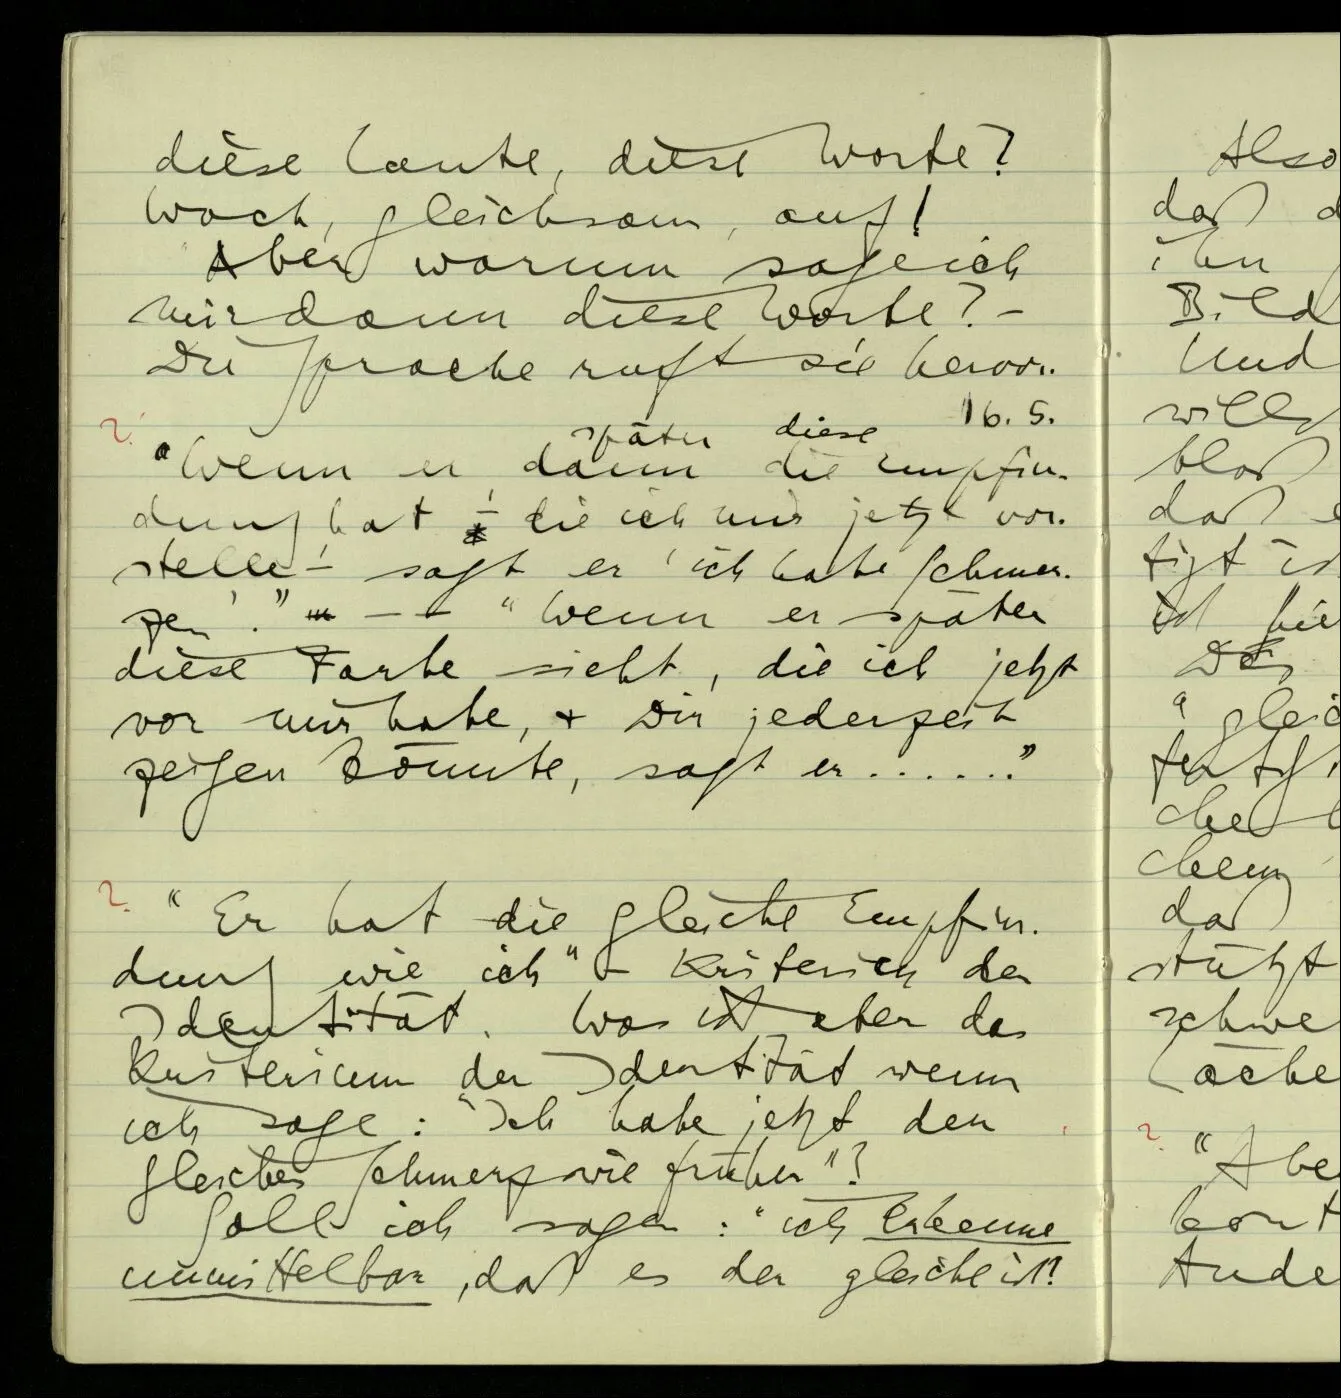 diese Laute, diese Worte?
Wach, gleichsam, auf!
Aber warum sage ich
mir dann diese Worte? –
Die Sprache ruft sie hervor.
16. 5.
? später diese
"Wenn er dann die Empfin-
dung hat – die ich mir jetzt vor-
stelle – sagt er 'ich habe Schmer-
zen'." – – "Wenn er später
diese Farbe sieht, die ich jetzt
vor mir habe, + Dir jederzeit
zeigen könnte, sagt er ......"
? "Er hat die gleiche Empfin-
dung wie ich" – Kriterien der
Identität. Was ist aber das
Kriterium der Identität wenn
ich sage: "Ich habe jetzt den
gleichen Schmerz wie früher"?
Soll ich sagen: "ich erkenne
unmittelbar, daß es der gleiche ist?
Also
daß d
ihn
Bild
Und
willst
bloß
daß e
tigt is
ist hie
"gleic
fertig,
che
chem
daß
stützt
schwe
? "Abe
könt
Ande